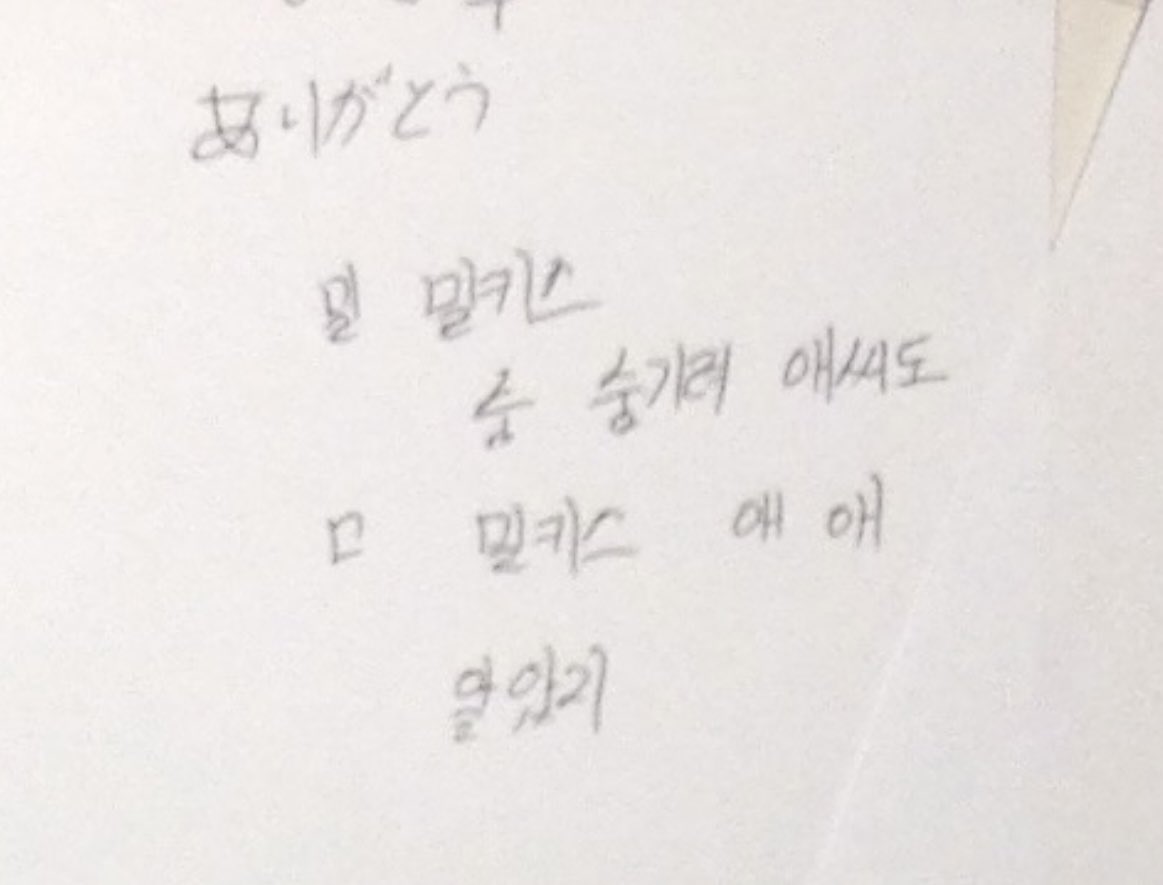 ありがとう
밀 밀키스
숨 숭기려 애씨도
ㅁ 밀키스 애 애
알았리